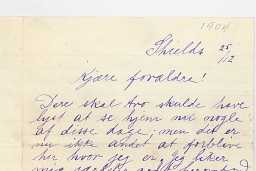 1904
Shields 25/12
Kjære forældre!
Dere skal tro skulde have
lyst at se hjem nu nogle
af disse dage, men det er
nu ikke andet at forblive
her hvor jeg er. Jeg liker
mig